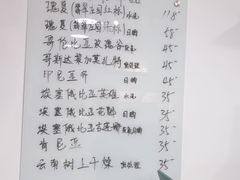 瑰夏(翡翠庄园红标) 水洗 118
瑰夏(翡翠庄园绿标) 日晒 58
哥伦比亚玫瑰谷 45
哥斯达黎加莫扎特 45
印尼 日晒 45
埃塞俄比亚英雄 水洗 35
埃塞俄比亚花魁 日晒 35
埃塞俄比亚 日晒 35
肯尼亚 35
云南树上干燥 35